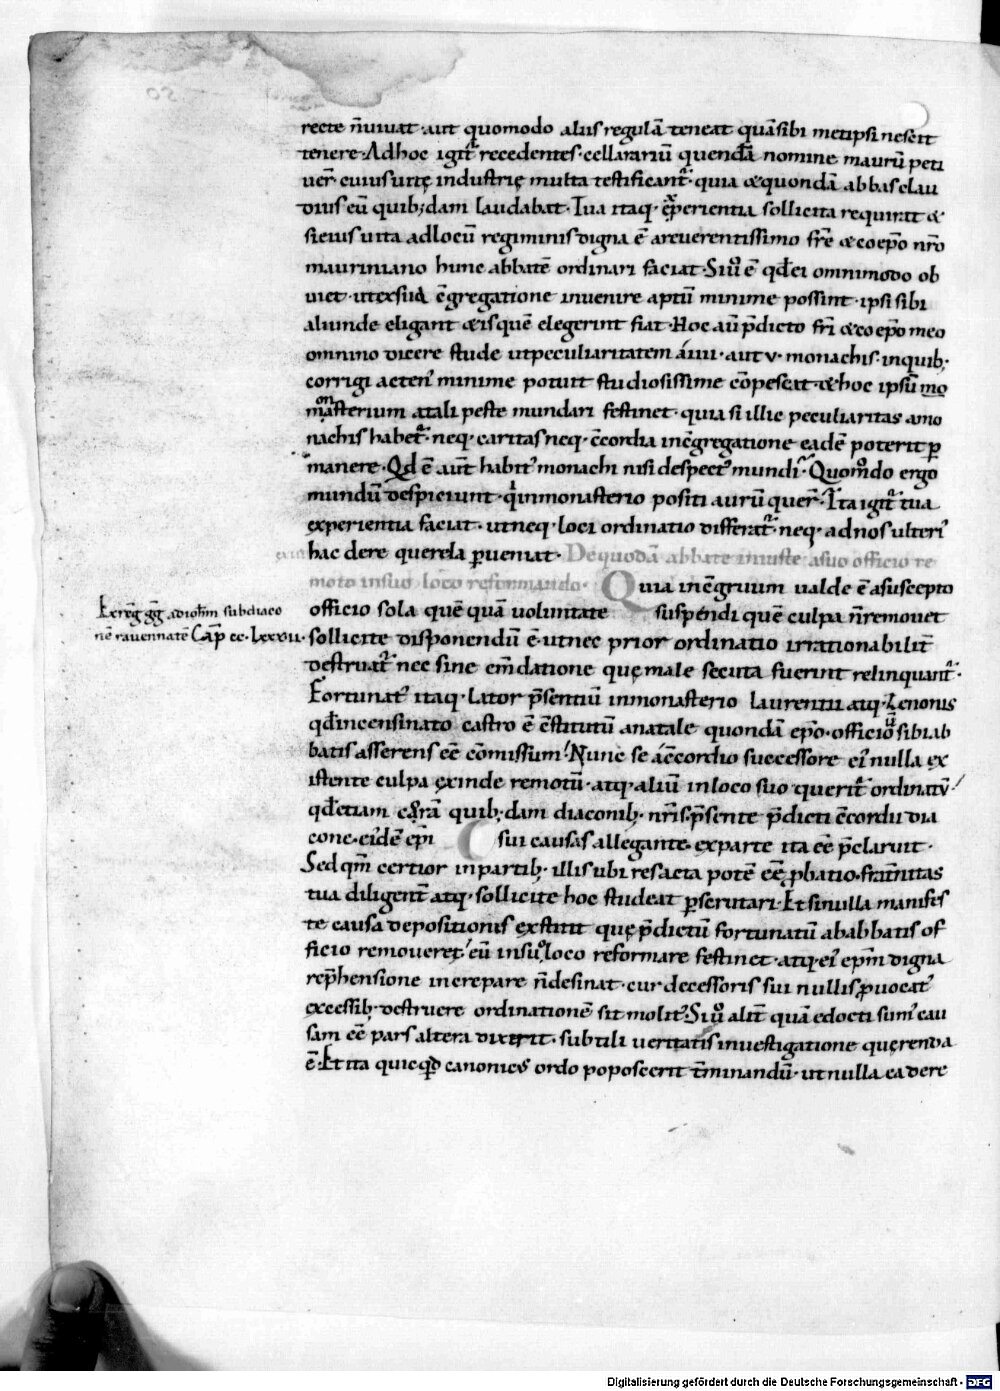 recte n̄ uiuat · aut quomodo aliis regulā teneat quā sibi metipsi nescit
tenere · Ad hoc igit̄ recedentes · cellarariū quendā nomine maurū peti
uer̄ cuius uitę industrię multa testificant̄ · quia & quondā abbas clau
dius eū quib; dam laudabat · Tua itaq · exp̄erientia sollicita requirat &
si eius uita ad locū regiminis digna ē a reuerentissimo fr̄e & coep̄o nr̄o
mauriniano hunc abbatē ordinari faciat · Siū ē qd̄ ei omnimodo ob
uiet · ut ex sua c̄gregatione inuenire aptū minime possint · ipsi sibi
aliunde eligant & is quē elegerint fiat · Hoc aū p̄dicto fr̄i & coep̄o meo
omnino dicere stude ut peculiaritatem a iiii · aut v · monachis · in quib;
corrigi acten' minime potuit studiosissime cōpescat · & hoc ipsū mo
masterium a tali peste mundari festinet · quia si illic peculiaritas a mo
nachis habet̄ · neq · caritas neq · c̄cordia in c̄gregatione eadē poterit p
manere · Qd ē aut̄ habit' monachi nisi despect' mundi · Quom̊do ergo
mundū despiciunt · qi in monasterio positi aurū quer̄ · Ita igit̄ tua
experientia faciat · ut neq · loci ordinatio differat̄ · neq · ad nos ulteri'
hac de re querela p̄ueniat · De quodā abbate iniuste a suo officio re
moto in suo loco reformando · Quia in c̄gruum ualde ē a suscepto
officio sola quē quā uoluntate suspendi quē culpa n̄ remouet
Ex reḡ gḡ ad ioh̄m subdiaco
nē rauennatē Cap̄ cc · Lxxvii ·
sollicite disponendū ē · ut nec prior ordinatio irrationabilit̄
destruat̄ nec sine em̄datione quę male secuta fuerint relinquant̄ ·
Fortunat' itaq · Lator p̄sentiū in monasterio laurentii atq · Zenonis
qd̄ in censinato castro ē c̄stitutū a natale quondā ep̄o · officiū sibi ab
batis asserens eē cōmissum · Nunc se a c̄cordio successore ei' nulla ex
istente culpa exinde remotū · atq · aliū in loco suo querit̄ ordinatū ·
qd̄ etiam corā quib; dam diaconib; · nr̄is p̄sente p̄dicti c̄cordii dia
cone · eidē ep̄i sui causas allegante · ex parte ita eē p̄claruit ·
Sed qm̄ certior in partib; · illis ubi res acta potē eē p̄batio · frat̄nitas
tua diligent̄ atq · sollicite hoc studeat p̄scrutari · Et si nulla manifes
te causa depositionis exstitit quę p̄dictū fortunatū ab abbatis of
ficio remoueret eū in suo loco reformare festinet · atq · ei' ep̄m digna
rep̄hensione increpare n̄ desinat · cur decessoris sui nullis p̄uocat'
excessib; · destruere ordinationē sit molit' · Siū alit̄ quā edocti sum' cau
sam eē pars altera dixerit · subtili ueritatis inuestigatione querenda
ē · Et ita quicqd canonic' ordo poposcerit t̄minandū · ut nulla ea de re